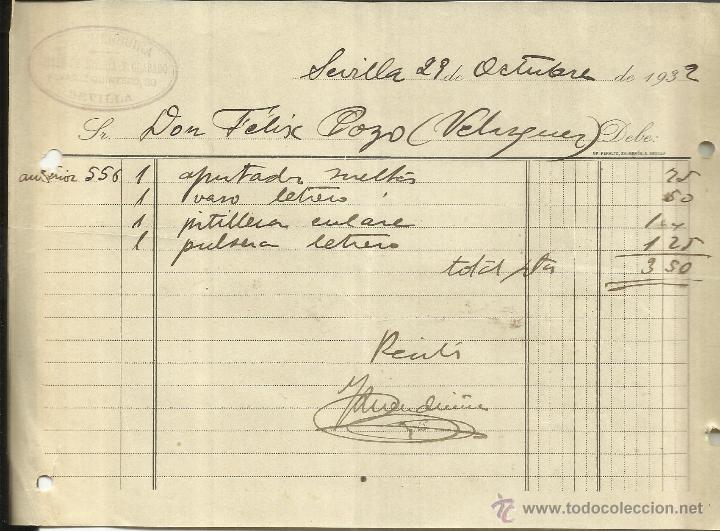 Sevilla 29 de Octubre de 1932
Sr. Don Félix Pozo (Velazquez) Debe:
anterior 556 1 apretador sueltas 75
1 vaso letrero 50
1 pitillera enlace 1"
1 pulsera letrero 1 25
total ptas 3 50
Recibí
SEVILLA
todocoleccion.net